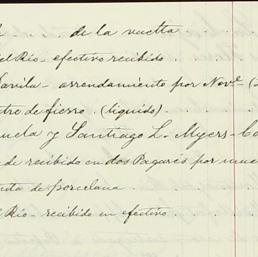 de la vuelta
el Río - efectivo recibido
Davila - arrendamiento por Nov.e
tro de fierro (líquido)
uela y Santiago L. Myers - Co
de recibido en dos Pagarés por
ta de porcelana
l Río - recibido en efectivo